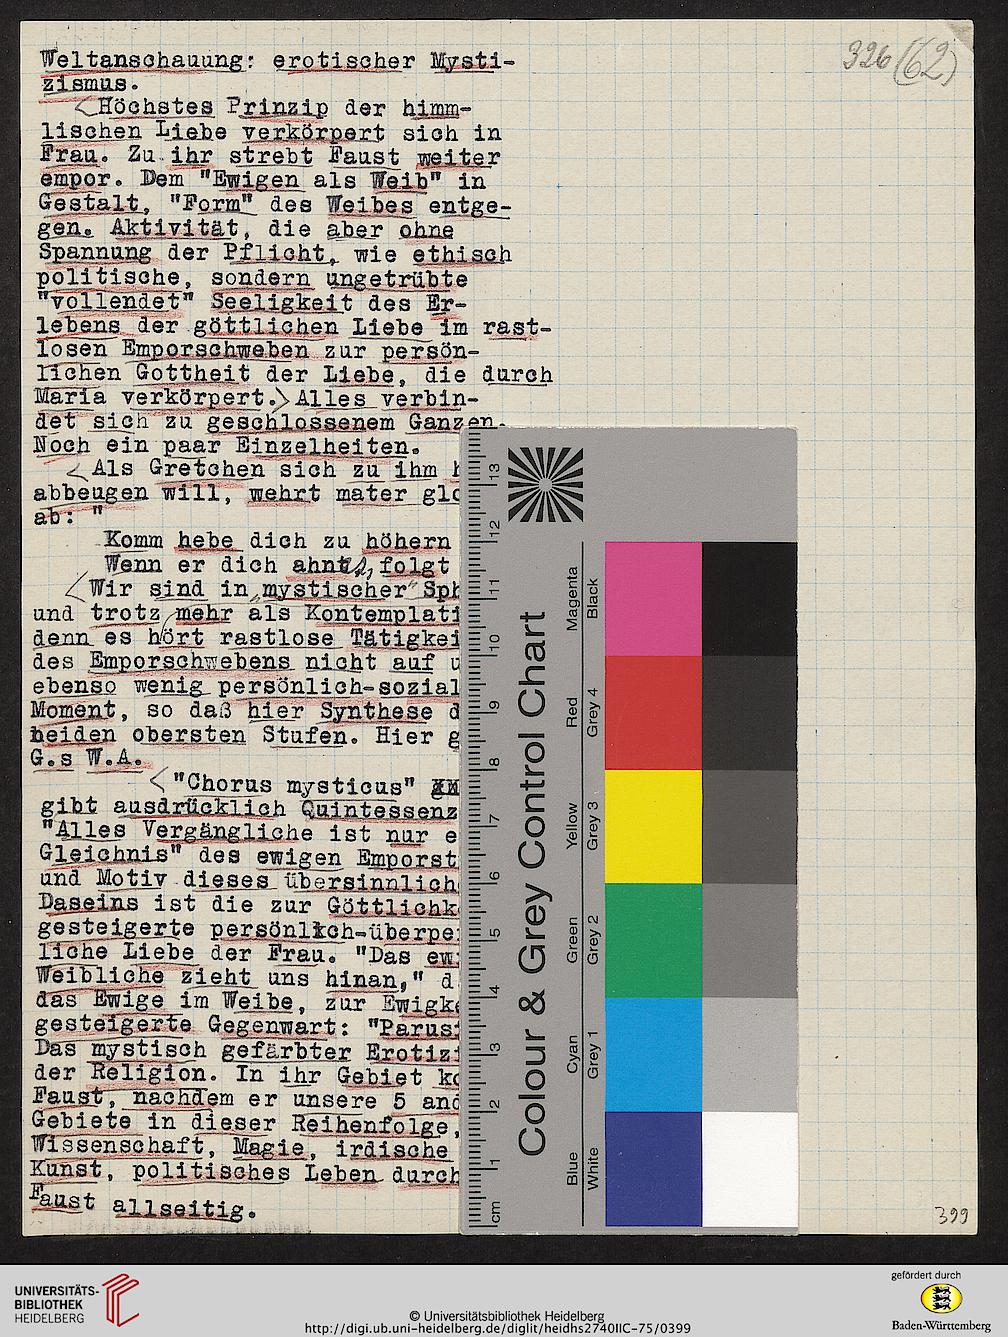 326 (62)
Weltanschauung: erotischer Mysti-
zismus.
<Höchstes Prinzip der himm-
lischen Liebe verkörpert sich in
Frau. Zu ihr strebt Faust weiter
empor. Dem "Ewigen als Weib" in
Gestalt, "Form" des Weibes entge-
gen. Aktivität, die aber ohne
Spannung der Pflicht, wie ethisch
politische, sondern ungetrübte
"vollendet" Seeligkeit des Er-
lebens der göttlichen Liebe im rast-
losen Emporschweben zur persön-
lichen Gottheit der Liebe, die durch
Maria verkörpert.> Alles verbin-
det sich zu geschlossenem Ganzen.
Noch ein paar Einzelheiten.
<Als Gretchen sich zu ihm
abbeugen will, wehrt mater glo
ab: "
Komm hebe dich zu höhern
Wenn er dich ahnt, folgt
<Wir sind in "mystischer" Sph
und trotz mehr als Kontemplati
denn es hört rastlose Tätigkei
des Emporschwebens nicht auf u
ebenso wenig persönlich-sozial
Moment, so daß hier Synthese d
beiden obersten Stufen. Hier g
G.s W.A.
<"Chorus mysticus"
gibt ausdrücklich Quintessenz
"Alles Vergängliche ist nur e
Gleichnis" des ewigen Emporst
und Motiv dieses übersinnlich
Daseins ist die zur Göttlichk
gesteigerte persönlich-überper
liche Liebe der Frau. "Das ew
Weibliche zieht uns hinan," d
das Ewige im Weibe, zur Ewigke
gesteigerte Gegenwart: "Parusi
Das mystisch gefärbter Erotizi
der Religion. In ihr Gebiet ko
Faust, nachdem er unsere 5 and
Gebiete in dieser Reihenfolge,
Wissenschaft, Magie, irdische
Kunst, politisches Leben durch
Faust allseitig.
399
Colour & Grey Control Chart
Blue Cyan Green Yellow Red Magenta
White Grey 1 Grey 2 Grey 3 Grey 4 Black
cm 1 2 3 4 5 6 7 8 9 10 11 12 13
UNIVERSITÄTS-
BIBLIOTHEK
HEIDELBERG
© Universitätsbibliothek Heidelberg
http://digi.ub.uni-heidelberg.de/diglit/heidhs2740IIC-75/0399
gefördert durch
Baden-Württemberg